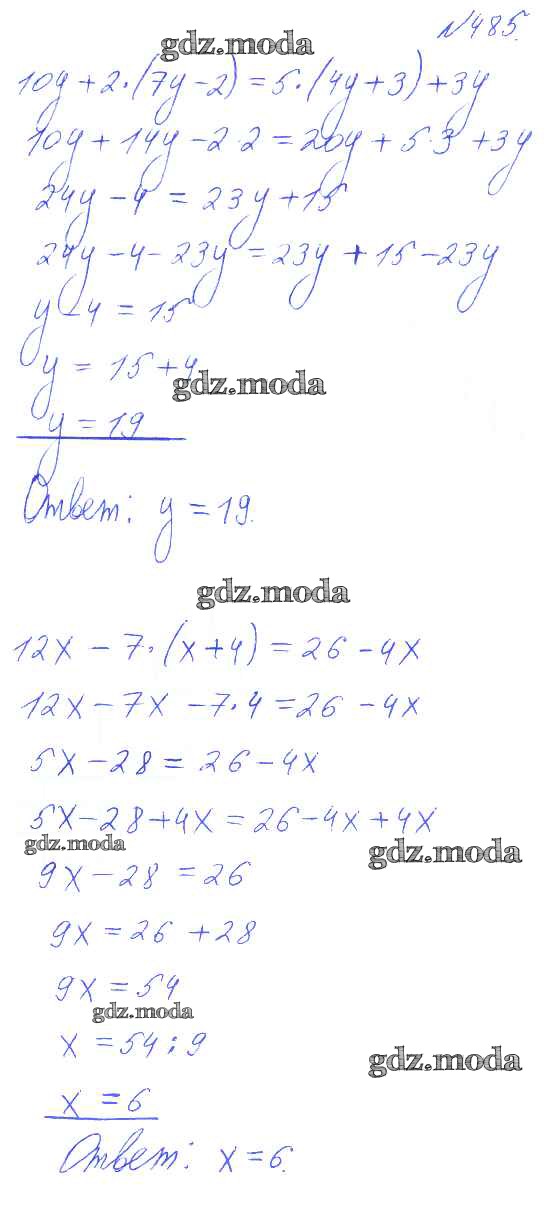 №485.
gdz.moda
10y + 2·(7y – 2) = 5·(4y + 3) + 3y
10y + 14y – 2·2 = 20y + 5·3 + 3y
24y – 4 = 23y + 15
24y – 4 – 23y = 23y + 15 – 23y
y – 4 = 15
y = 15 + 4
gdz.moda
y = 19
Ответ: y = 19.
gdz.moda
12x – 7·(x + 4) = 26 – 4x
12x – 7x – 7·4 = 26 – 4x
5x – 28 = 26 – 4x
5x – 28 + 4x = 26 – 4x + 4x
gdz.moda
gdz.moda
9x – 28 = 26
9x = 26 + 28
9x = 54
gdz.moda
x = 54 : 9
gdz.moda
x = 6
Ответ: x = 6.